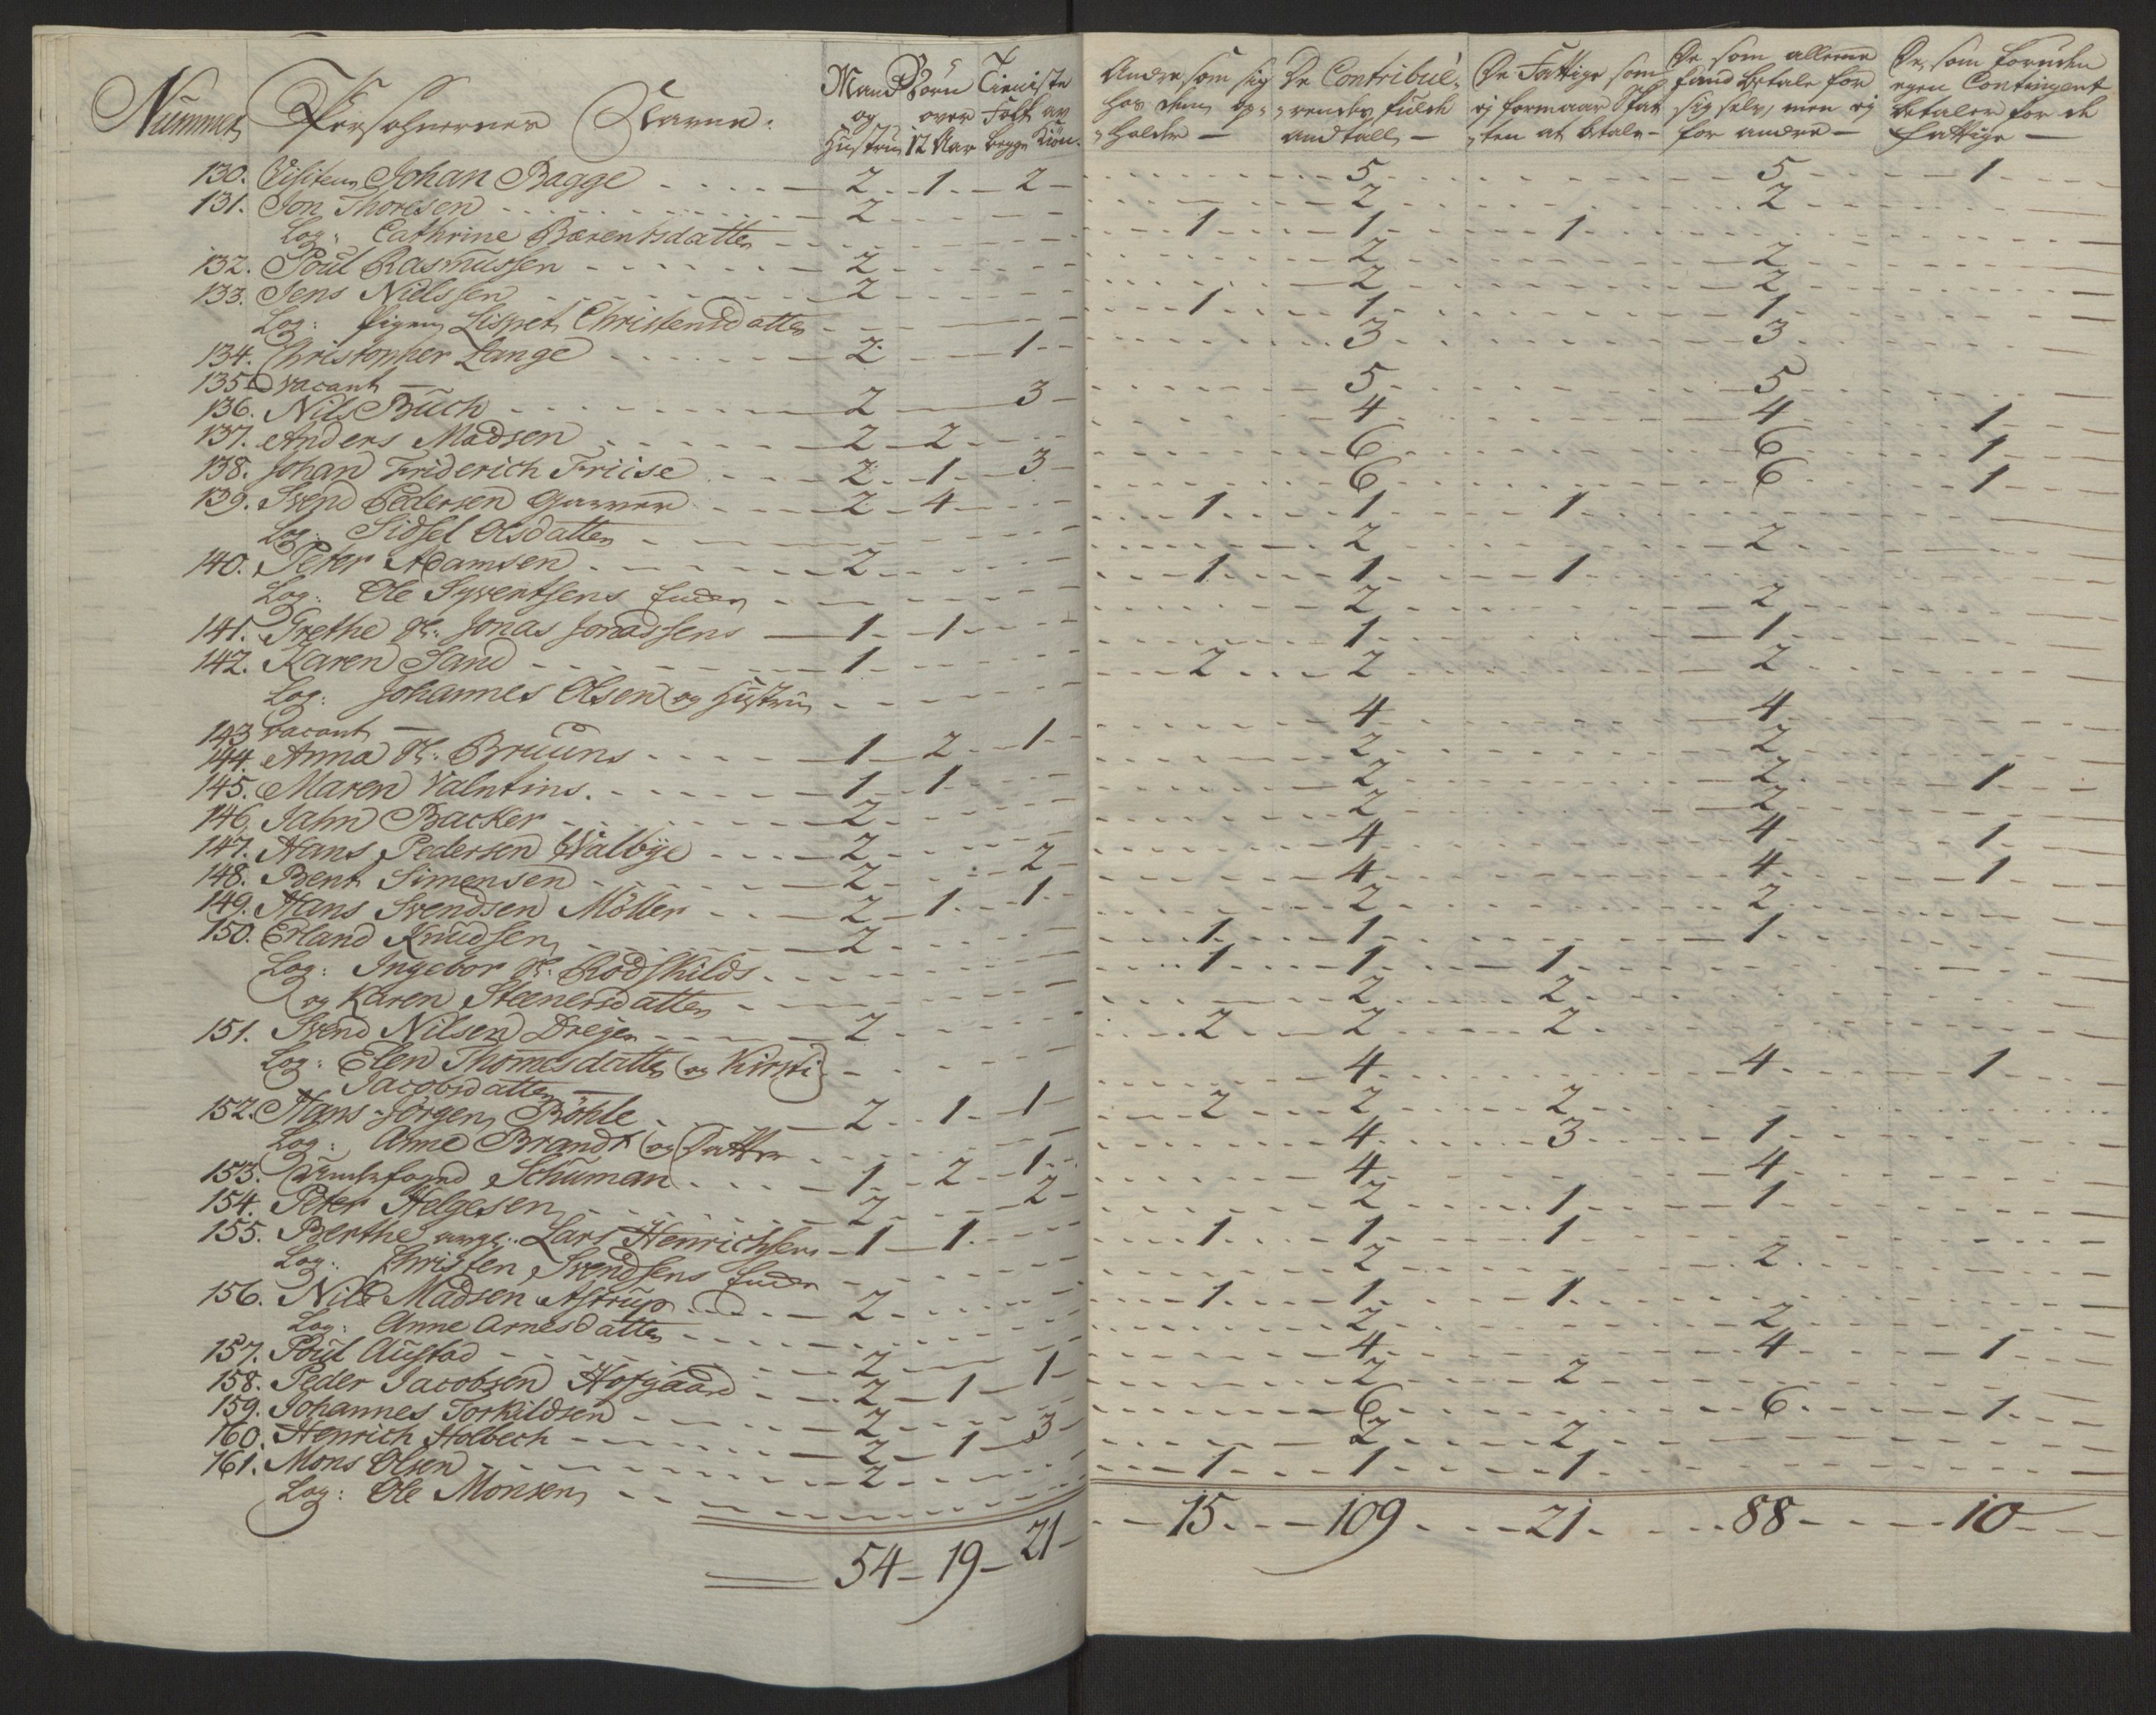 Nummer Persohnernes Navne. Mand og Hustru Börn over 12 Aar Tieniste Folk av begge Kiön. Andre som sig hos dem op-holder — De Contribue-rendes fulde andtall — De Fattige som ej formaar Skat-ten at betale — De som allene kand betale for sig selv, men ej for andre — De som foruden egen Contingent betaler for de fattige —
130. Visiteur Johan Bagge 2 1 2 5 5 1
131. Jon Thoresen 2 2 2
Log: Cathrine Bærentsdatter 1 1 1
132. Poul Rasmussen 2 2 2
133. Jens Nielssen 2 2 2
Log: pigen Lispet Christensdatter 1 1 1
134. Christopher Lange 2 1 3 3
135 vacant —
136. Nils Buch 2 3 5 5
137. Anders Madsen 2 2 4 4 1
138. Johan Friderich Friise 2 1 3 6 6 1
139. Svend Pedersen Garver 2 4 6 6 1
Log: Sidsel Olsdatter 1 1 1
140. Peter Adamsen 2 2 2
Log: Ole Syvertsens Encke 1 1 1
141. Grethe Sl: Jonas Jonassens 1 1 2 2
142. Karen Sand 1 1 1
Log: Johannes Olsen og Hustru 2 2 2
143 vacant —
144. Anna Sl: Bruuns 1 2 1 4 4
145. Maren Valntins. 1 1 2 2
146. Jahn Backer 2 2 2 1
147. Hans Pedersen Walbye 2 2 2
148. Bent Simensen 2 2 4 4 1
149. Hans Svendsen Möller 2 1 1 4 4 1
150. Erland Knudsen 2 2 2
Log: Ingebor Sl: Rodskilds 1 1 1
og Karen Steenersdatter 1 1 1
151. Svend Nilsen Dreyer 2 2 2
Log: Elen Thomesdatter og Kirsti 2 2 2
Jacobsdatter —
152. Hans Jörgen Böhle 2 1 1 4 4 1
Log: Anne Brandt og Datter 2 2 2
153. Schuman 1 2 1 4 3 1
154. Peter Helgesen 2 2 4 4
155. Berthe Lars Henrichsens 1 1 2 1 1
Log: Christen Svendsens Encke 1 1 1
156. Nils Madsen Astrup 2 2 2
Log: Anne Arnesdatter 1 1 1
157. Poul Austad 2 2 2
158. Peder Jacobsen Hofgaard 2 1 1 4 4 1
159. Johannes Torkildsen 2 2 2
160. Henrich Holbech 2 1 3 6 6 1
161. Mons Olsen 2 2 2
Log: Ole Monsen 1 1 1
54 19 21 15 109 21 88 10